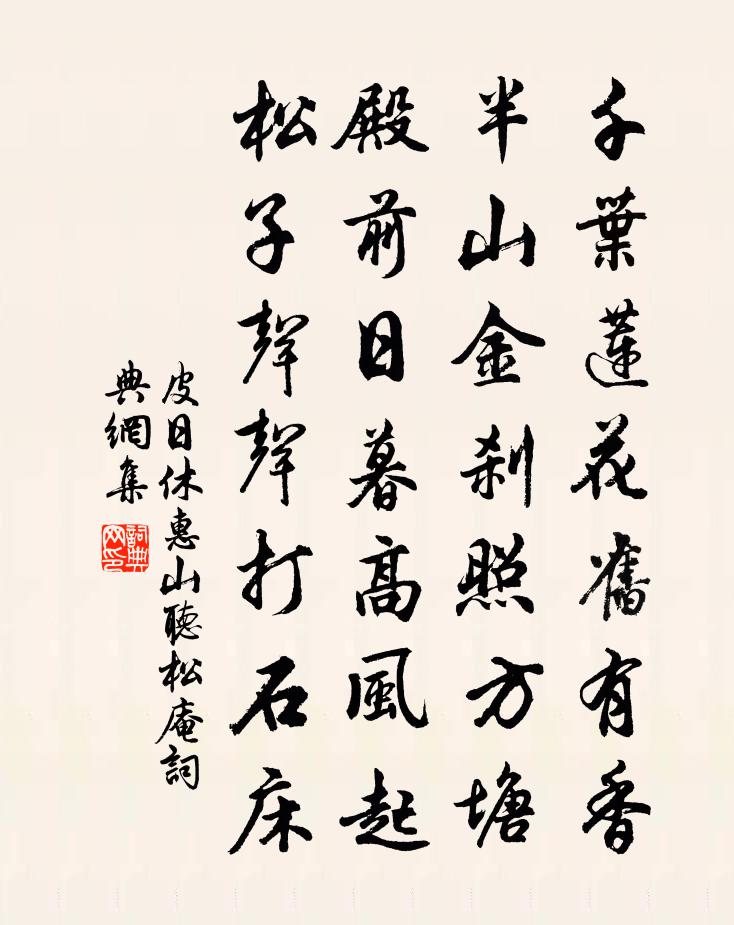 千葉蓮花舊有香
半山金刹照方塘
殿前日暮高風起
松子聲聲打石床
皮日休惠山聽松庵詞
典網集
詞典网印